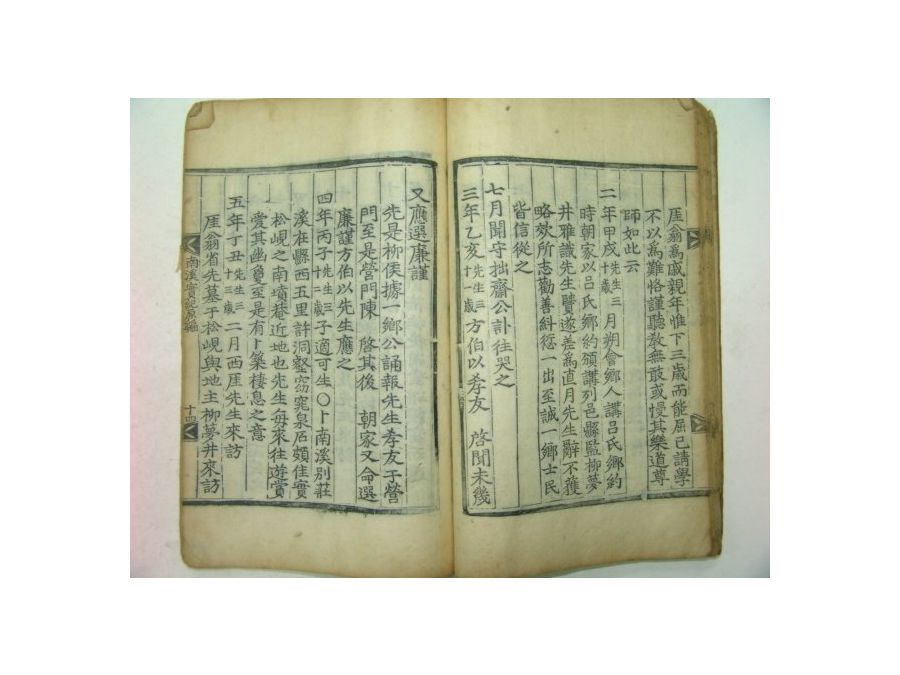 厓翁爲戚親年惟下三歲而能屈已請學
不以爲難恪謹聽教無敢或慢其樂道尊
師如此云
二年甲戌先生三十歲三月朔會鄉人講呂氏鄉約
時朝家以呂氏鄉約頒講列邑縣監柳夢
井雅識先生賢遂差爲直月先生辭不獲
略效所志勸善糾愆一出至誠一鄉士民
皆信從之
七月聞守拙齋公訃往哭之
三年乙亥先生三十一歲方伯以孝友 啓聞未幾
又應選廉謹
先是柳侯據一鄉公誦報先生孝友于營
門至是營門陳 啓其後 朝家又命選
廉謹方伯以先生應之
四年丙子先生三十二歲子適可生〇卜南溪別莊
溪在縣西五里許洞壑窈窕泉石頗佳實
松峴之南墳菴近地也先生每來往遊賞
愛其幽夐至是有卜築棲息之意
五年丁丑先生三十三歲二月西厓先生來訪
厓翁省先墓于松峴與地主柳夢井來訪
南溪實記原編
十四